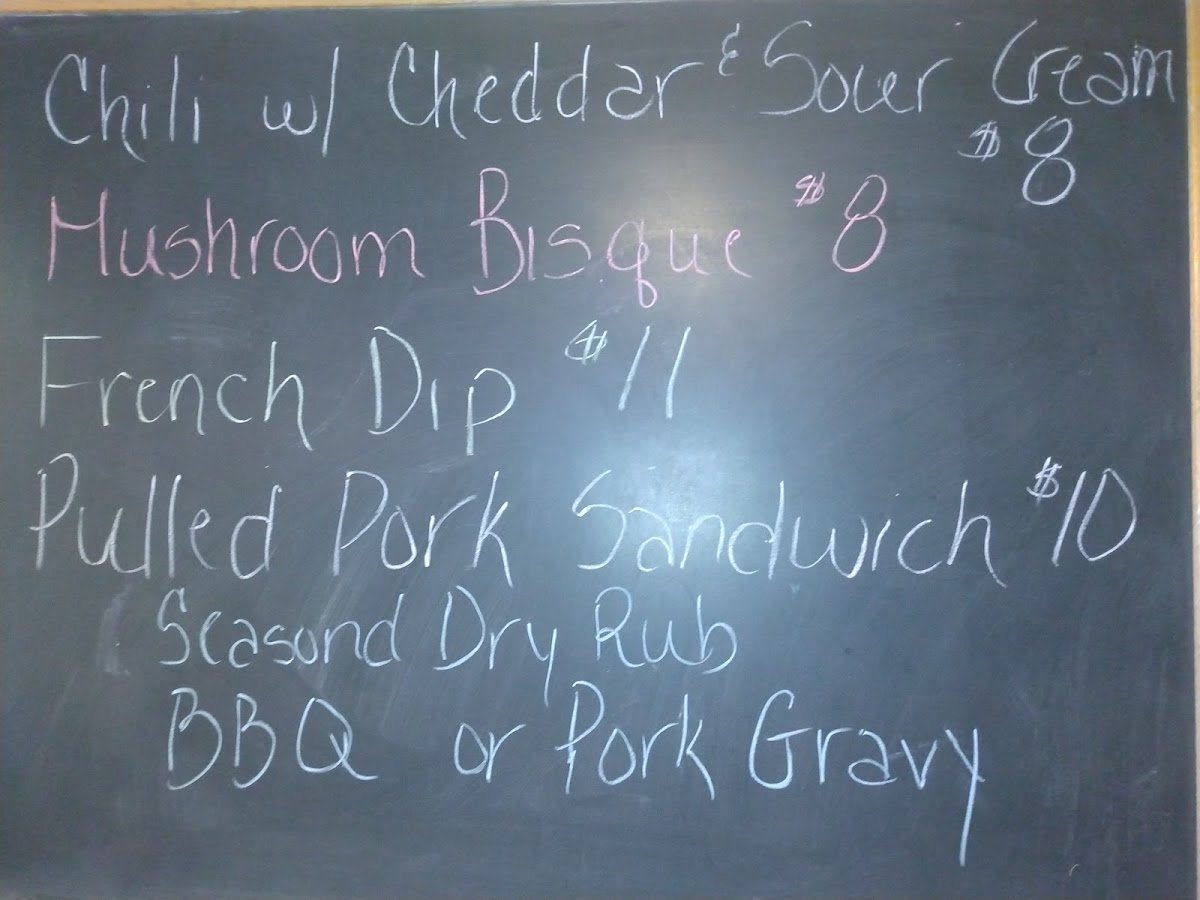 Chili w/ Cheddar & Souer Cream
$8
Mushroom Bisque $8
French Dip $11
Pulled Pork Sandwich $10
Seasond Dry Rub
BBQ or Pork Gravy